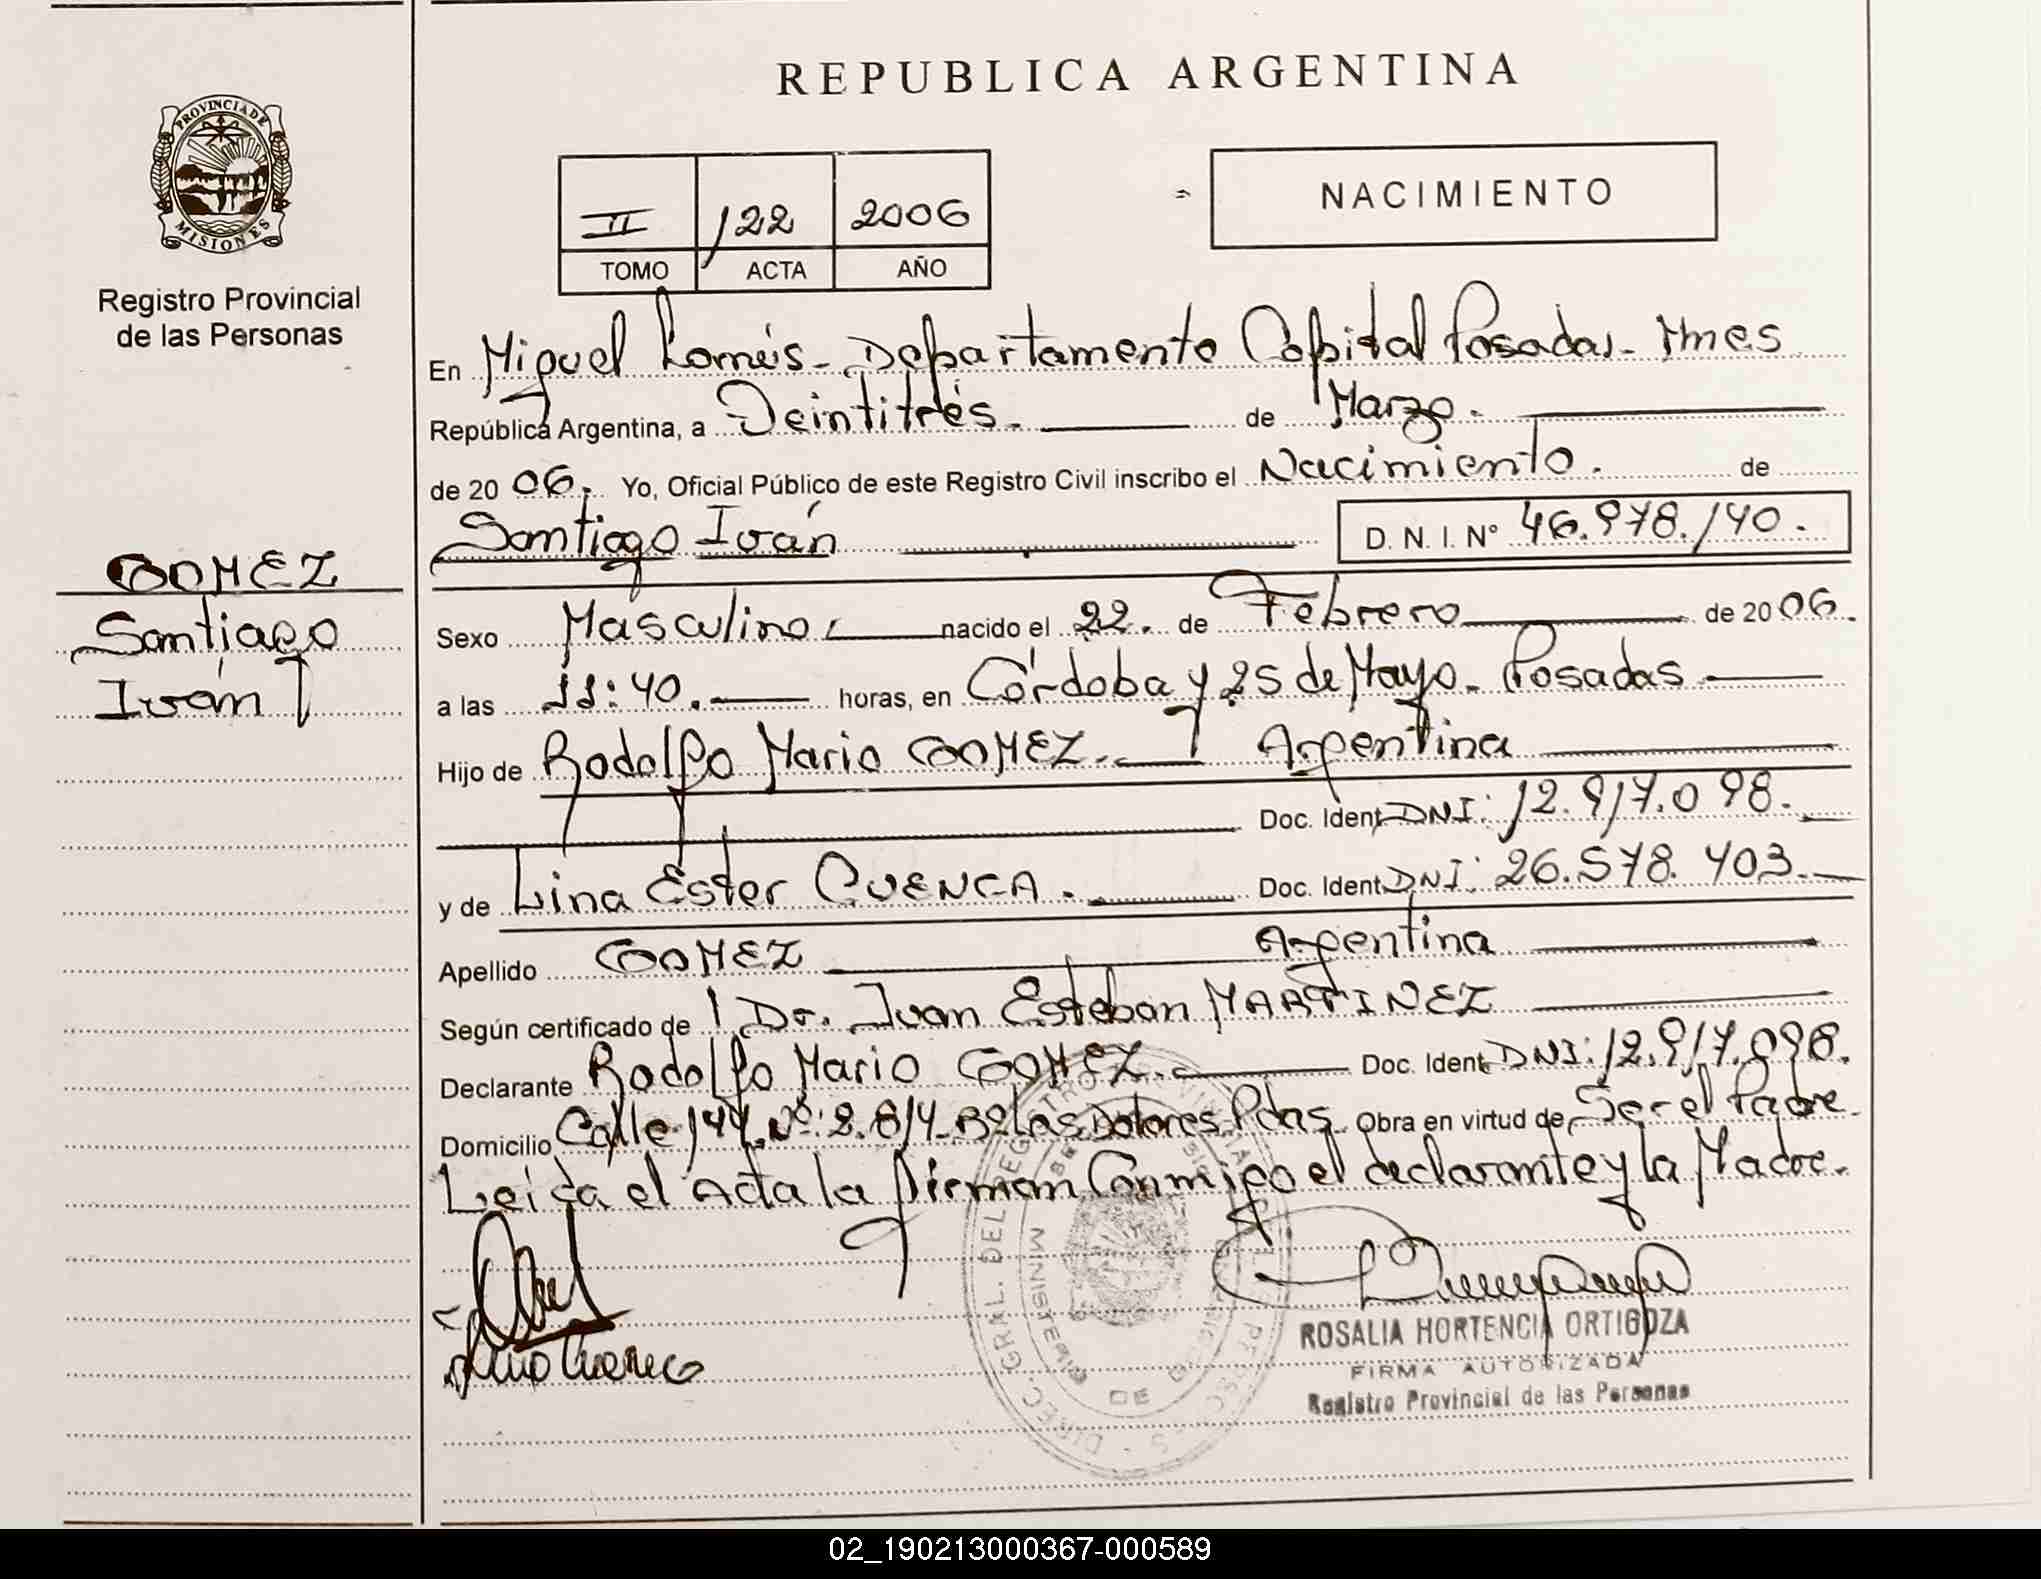 REPUBLICA ARGENTINA
PROVINCIA DE
MISIONES
Registro Provincial
de las Personas
II 122 2006
TOMO ACTA AÑO
NACIMIENTO
En Miguel Lanús - Departamento Capital Posadas - Mnes
República Argentina, a Veintitrés. de Marzo.
de 2006. Yo, Oficial Público de este Registro Civil inscribo el Nacimiento. de
Santiago Iván D. N. I. Nº 46.978.140.
GOMEZ
Santiago
Iván
Sexo Masculino. nacido el 22. de Febrero de 2006.
a las 11:40. horas, en Córdoba y 25 de Mayo - Posadas
Hijo de Rodolfo Mario GOMEZ. Argentina
Doc. Ident. DNI: 12.917.098.
y de Lina Ester CUENCA. Doc. Ident. DNI: 26.578.403.
Apellido GOMEZ Argentina
Según certificado de Dr. Juan Esteban MARTINEZ
Declarante Rodolfo Mario GOMEZ. Doc. Ident. DNI: 12.917.098.
Domicilio Calle 144 Nº: 2.814 Bº Las Dolores Pdas. Obra en virtud de Ser el Padre.
Leída el Acta la firman Conmigo el declarante y la Madre.
ROSALIA HORTENCIA ORTIGOZA
FIRMA AUTORIZADA
Registro Provincial de las Personas
02_190213000367-000589